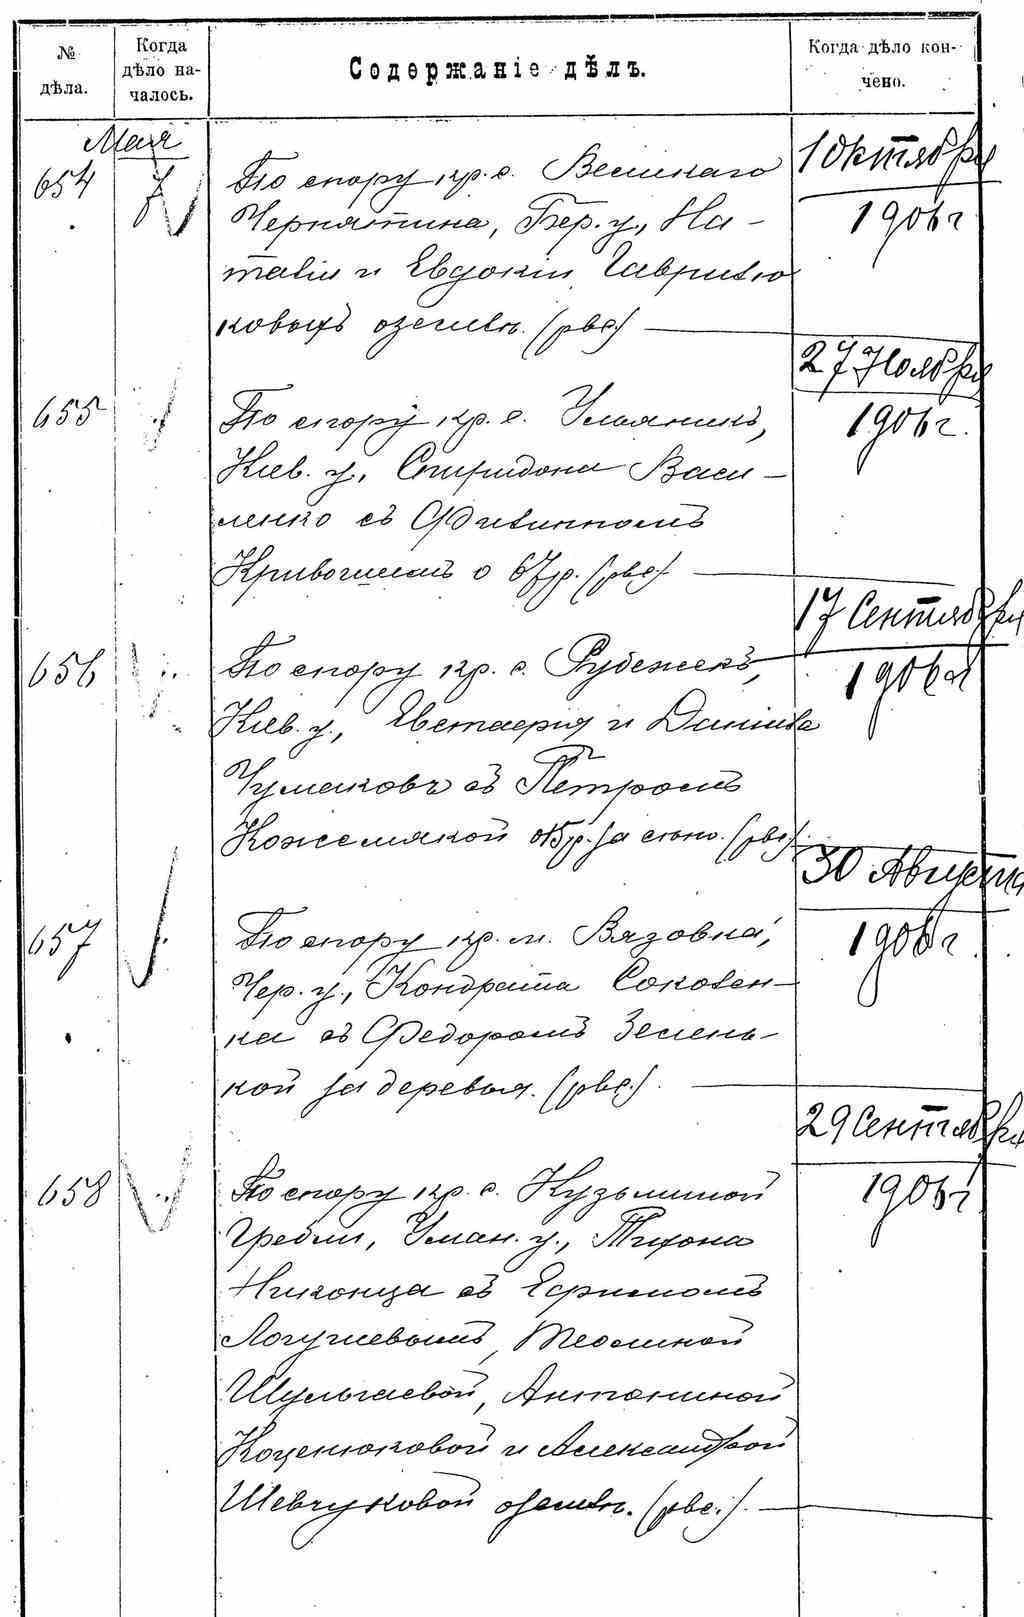 № дѣла.
Когда дѣло началось.
Содержаніе дѣлъ.
Когда дѣло кончено.
Мая
654
7
По спору кр. с. Великаго
Чернятина, Бер. у., На-
таліи и Евдокіи Гаврилю-
ковыхъ о землѣ.
1 Октября
1906 г
655
По спору кр. с. Ульяникъ,
Кіев. у., Спиридона Васи-
ленко съ Филиппомъ
27 Ноября
1906 г.
656
По спору кр. с. Рубежекъ,
Кіев. у., Евстафія и Даніила
Чумаковъ съ Петромъ
Кожемякой за сѣно.
17 Сентября
1906 г
657
По спору кр. м. Вязовка,
Чер. у., Кондрата Соколен-
ка съ Федоромъ Зелень-
кой за деревья.
30 Августа
1906 г
658
По спору кр. с. Кузьминой
Гребли, Уман. у., Тихона
Никонца съ Ефимомъ
Логучевымъ, Теклиной
Шульгаевой, Антониной
Коценюковой и Александрой
Шевчуковой о землѣ.
29 Сентября
1906 г